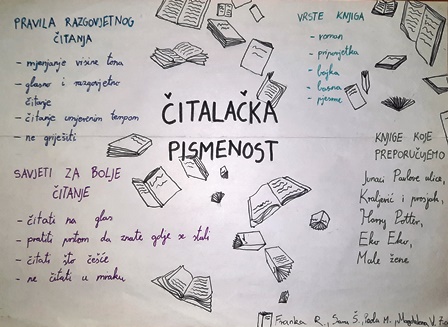 PRAVILA RAZGOVJETNOG
ČITANJA
- mjenjanje visine tona
- glasno i razgovjetno
čitanje
- čitanje umjerenim tempom
- ne griješiti
ČITALAČKA
PISMENOST
VRSTE KNJIGA
- roman
- pripovjetka
- bajka
- basna
- pjesme
SAVJETI ZA BOLJE
ČITANJE
- čitati na glas
- pratiti prstom da znate gdje se stali
- čitati što češće
- ne čitati u mraku
KNJIGE KOJE
PREPORUČUJEMO
Junaci Pavlove ulice,
Kraljević i prosjak,
Harry Potter,
Eko Eko,
Male žene
Franka R., Sara Š., Paola M., Magdalena V.